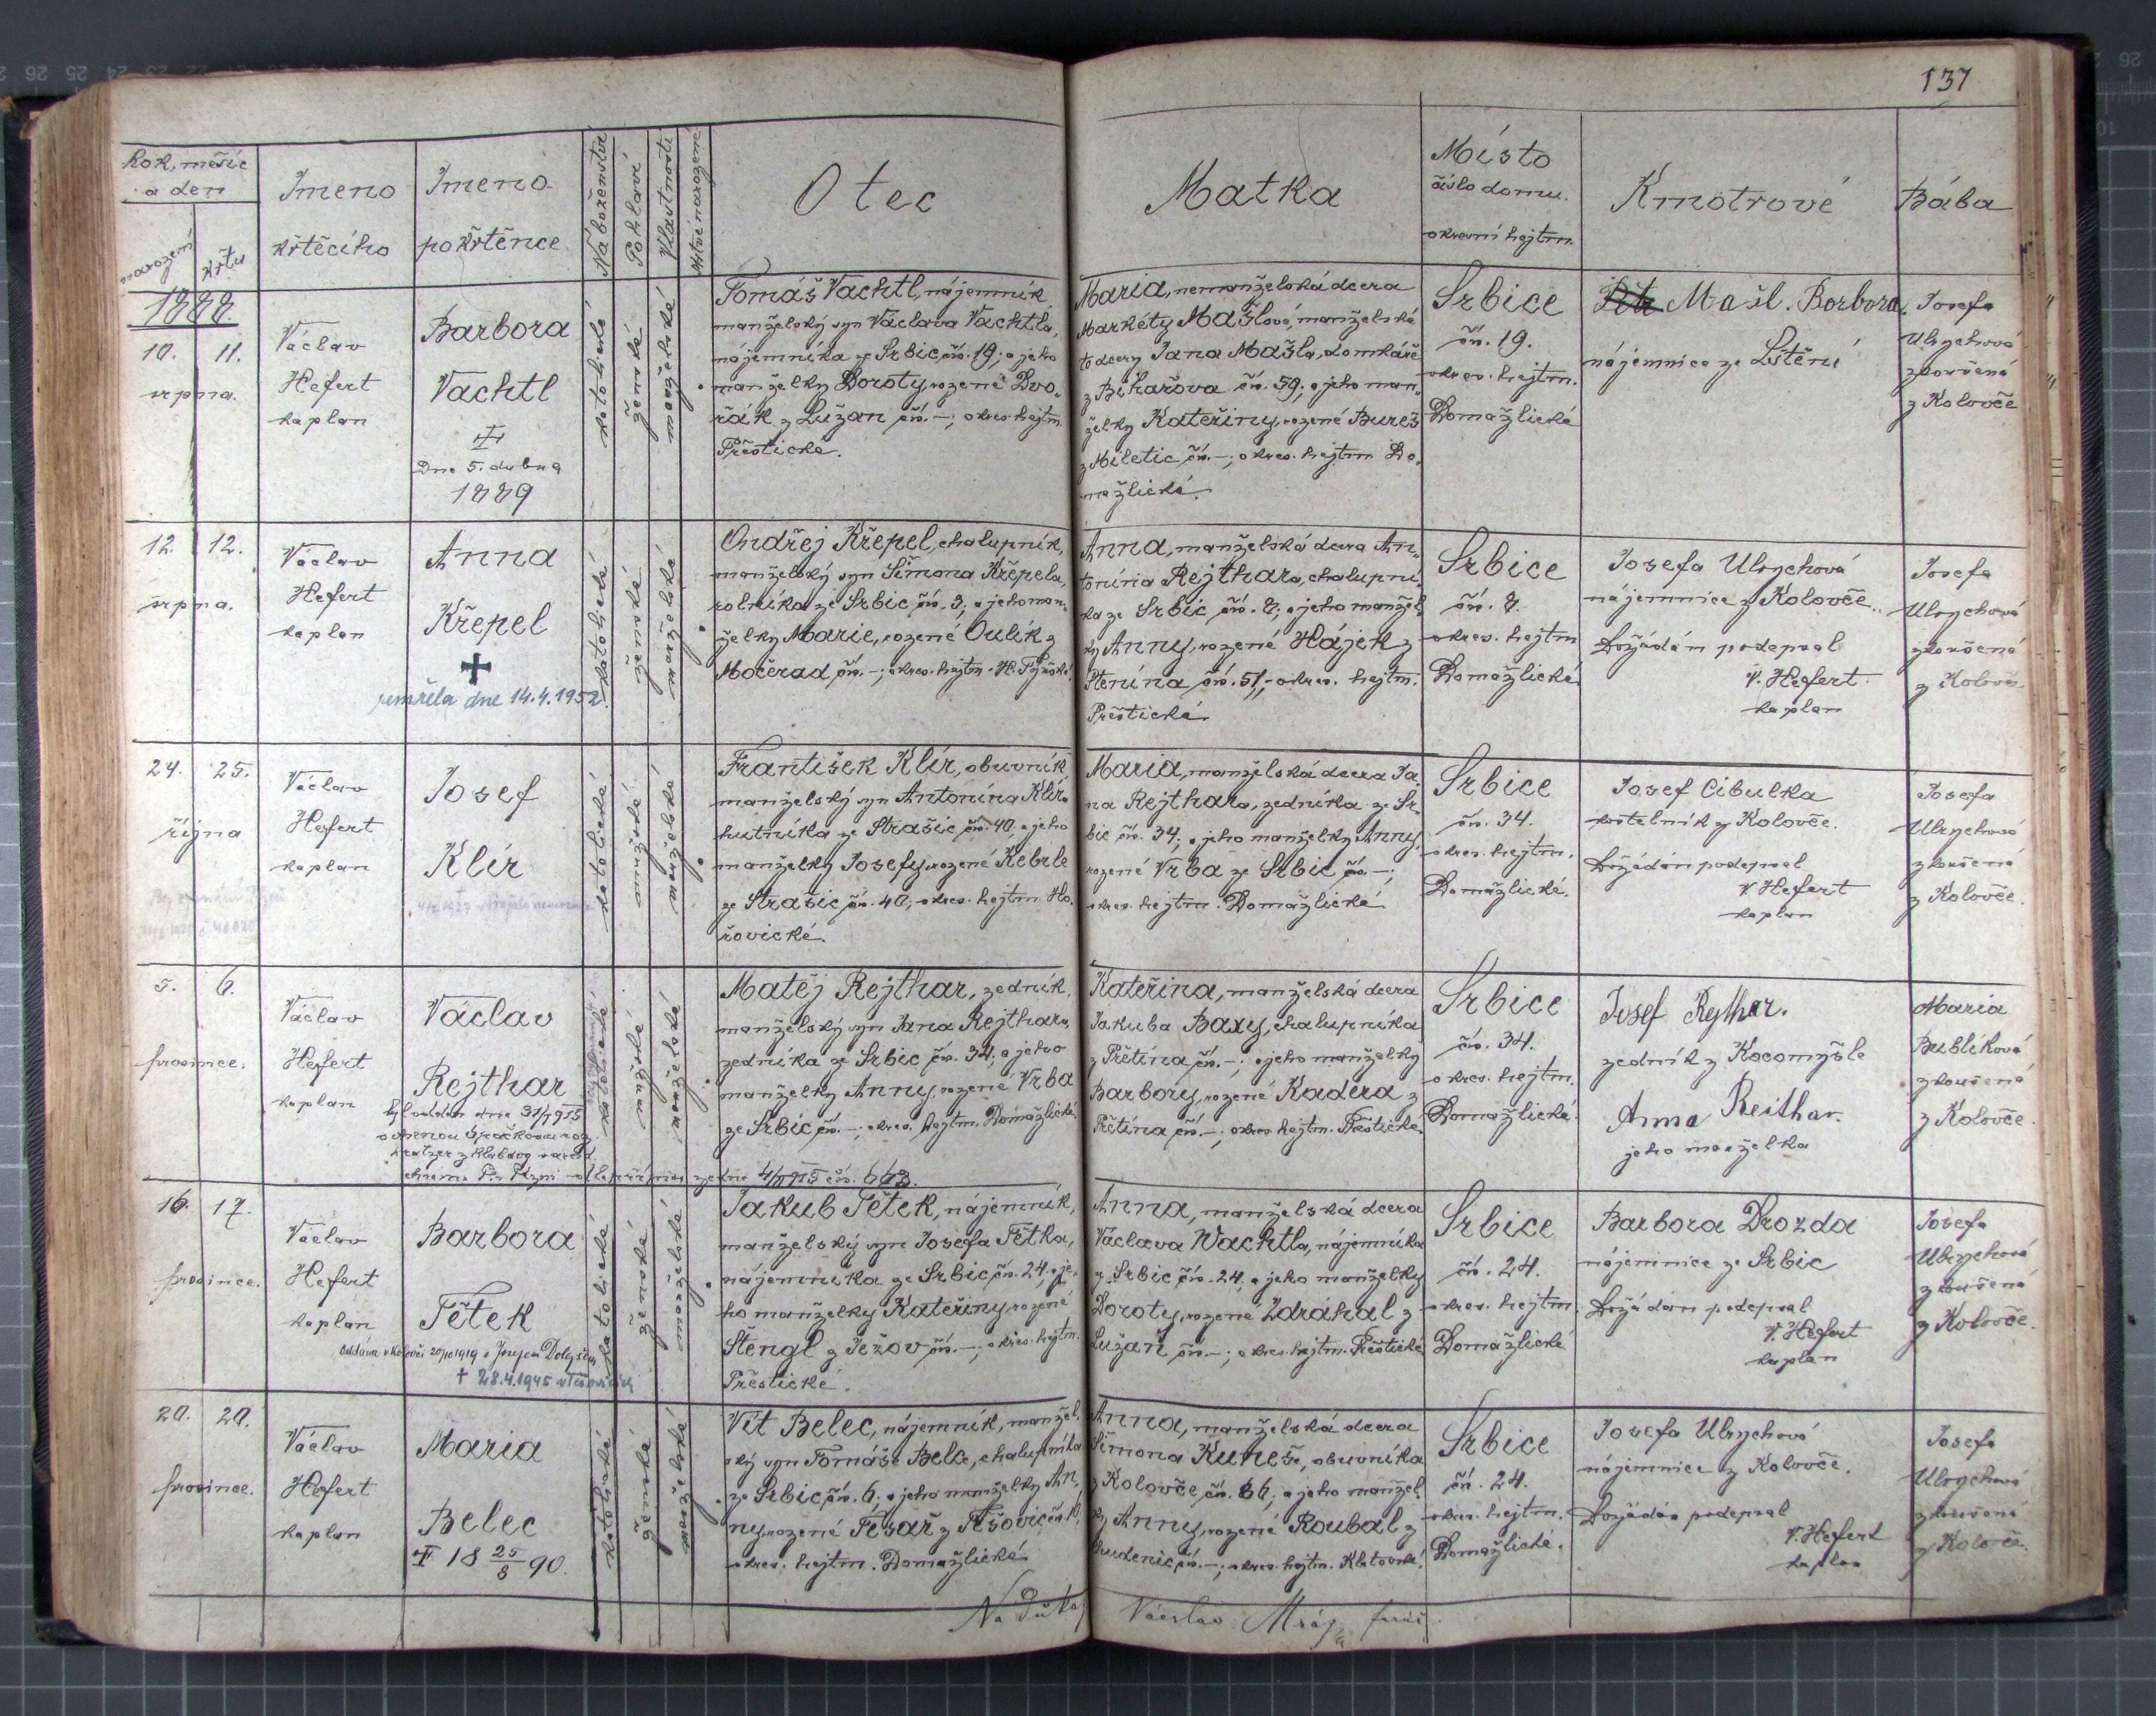 137
Rok, měsíc
a den
narození
křtu
Jmeno
křtěcího
Jmeno
pokřtěnce
Náboženství
Pohlaví
Mrtvě narozené
Otec
Matka
Místo
číslo domu.
okresní hejtm.
Kmotrové
Bába
1888.
10. 11.
srpna.
Václav
Hefert
kaplan
Barbora
Vachtl
Dne 5. dubna
1889
katolické
ženské
manželské
Tomáš Vachtl, nájemník,
manželský syn Václava Vachtla,
nájemníka ze Srbic čís. 19; a jeho
manželky Doroty, rozené Dvo„
řák z Lužan čís. –; okres. hejtm.
Přestické.
Maria, nemanželská dcera
Markéty Mašlové, manželské
to dcery Jana Mašla, domkáře
čís. 59; a jeho man„
želky Kateřiny, rozené Bureš
z Miletic čís. –; okres. hejtm. Do„
mažlické.
Srbice
čís. 19.
okres. hejtm.
Domažlické
Mašl. Borbora,
nájemnice ze Lštění
Josefa
Ulrychová
zkoušená
z Kolovče
12. 12.
srpna.
Václav
Hefert
kaplan
Anna
Křepel
umřela dne 14.4.1952.
katolické
ženské
manželské
Ondřej Křepel, chalupník,
manželský syn Šimona Křepela,
rolníka ze Srbic čís. 3; a jeho man„
želky Marie, rozené Oulík z
Močerad čís. –; okres. hejtm. H. Týnské.
Anna, manželská dcera An„
tonína Rejthara, chalupní„
ka ze Srbic čís. 8; a jeho manžel„
ky Anny, rozené Hájek z
čís. 51,; okres. hejtm.
Přestické.
Srbice
čís. 8.
okres. hejtm
Domažlické.
Josefa Ulrychová
nájemnice z Kolovče..
Dožádán podepsal
V. Hefert.
kaplan
Josefa
Ulrychová
zkoušená
z Kolovče
24. 25.
října
Václav
Hefert
kaplan
Josef
Klír
katolické
mužské
manželské
František Klír, obuvník
manželský syn Antonína Klíra
hutníka ze Strašic čís. 40; a jeho
manželky Josefy, rozené Kebrle
ze Strašic čís. 40; okres. hejtm. Ho„
řovické.
Maria, manželská dcera Ja„
na Rejthara, zedníka ze Sr„
bic čís. 34; a jeho manželky Anny,
rozené Vrba ze Srbic čís. –;
okres. hejtm. Domažlické
Srbice
čís. 34.
okres. hejtm.
Domažlické.
Josef Cibulka
kostelník z Kolovče.
Dožádán podepsal
V. Hefert
kaplan
Josefa
Ulrychová
zkoušená
z Kolovče.
5. 6.
prosince.
Václav
Hefert
kaplan
Václav
Rejthar
katolické
mužské
manželské
Matěj Rejthar, zedník,
manželský syn Jana Rejthara,
zedníka ze Srbic čís. 34; a jeho
manželky Anny, rozené Vrba
ze Srbic čís. –; okres. hejtm. Domažlické.
Kateřina, manželská dcera
Jakuba Baxy, chalupníka
z Přetína čís. –; a jeho manželky
Barbory, rozené Kadera z
Přetína čís. –; okres. hejtm. Přestické.
Srbice
čís. 34.
okres. hejtm.
Domažlické.
Josef Rejthar.
zedník z Kocomyšle
Anna Reithar.
jeho manželka
Maria
Bublíková
zkoušená
z Kolovče.
16. 17.
prosince.
Václav
Hefert
kaplan
Barbora
Tětek
oddána v Kolovči 20/10 1919 s Josefem
† 28.4.1945
katolické
ženské
manželské
Jakub Tětek, nájemník,
manželský syn Josefa Tětka,
nájemníka ze Srbic čís. 24; a je„
ho manželky Kateřiny, rozené
Štengl z Ježov čís. –; okres. hejtm.
Přestické.
Anna, manželská dcera
Václava Wachtla, nájemníka
z Srbic čís. 24; a jeho manželky
Doroty, rozené Zdráhal z
Lužan čís. –; okres. hejtm. Přestické
Srbice
čís. 24.
okres. hejtm.
Domažlické
Barbora Drozda
nájemnice ze Srbic
Dožádán podepsal
V. Hefert
kaplan
Josefa
Ulrychová
zkoušená
z Kolovče.
20. 20.
prosince.
Václav
Hefert
kaplan
Maria
Belec
18 25/8 90.
katolické
ženské
manželské
Vít Belec, nájemník, manžel„
ský syn Tomáše Belce, chalupníka
ze Srbic čís. 6; a jeho manželky An„
ny, rozené Tesař z
okres. hejtm. Domažlické
Anna, manželská dcera
Šimona Kuneše, obuvníka
z Kolovče čís. 86; a jeho manžel„
ky Anny, rozené Roubal z
čís. –; okres. hejtm. Klatovské.
Srbice
čís. 24.
okres. hejtm.
Domažlické.
Josefa Ulrychová
nájemnice z Kolovče.
Dožádán podepsal
V. Hefert
kaplan
Josefa
Ulrychová
zkoušená
z Kolovče.
Václav Mráz farář.